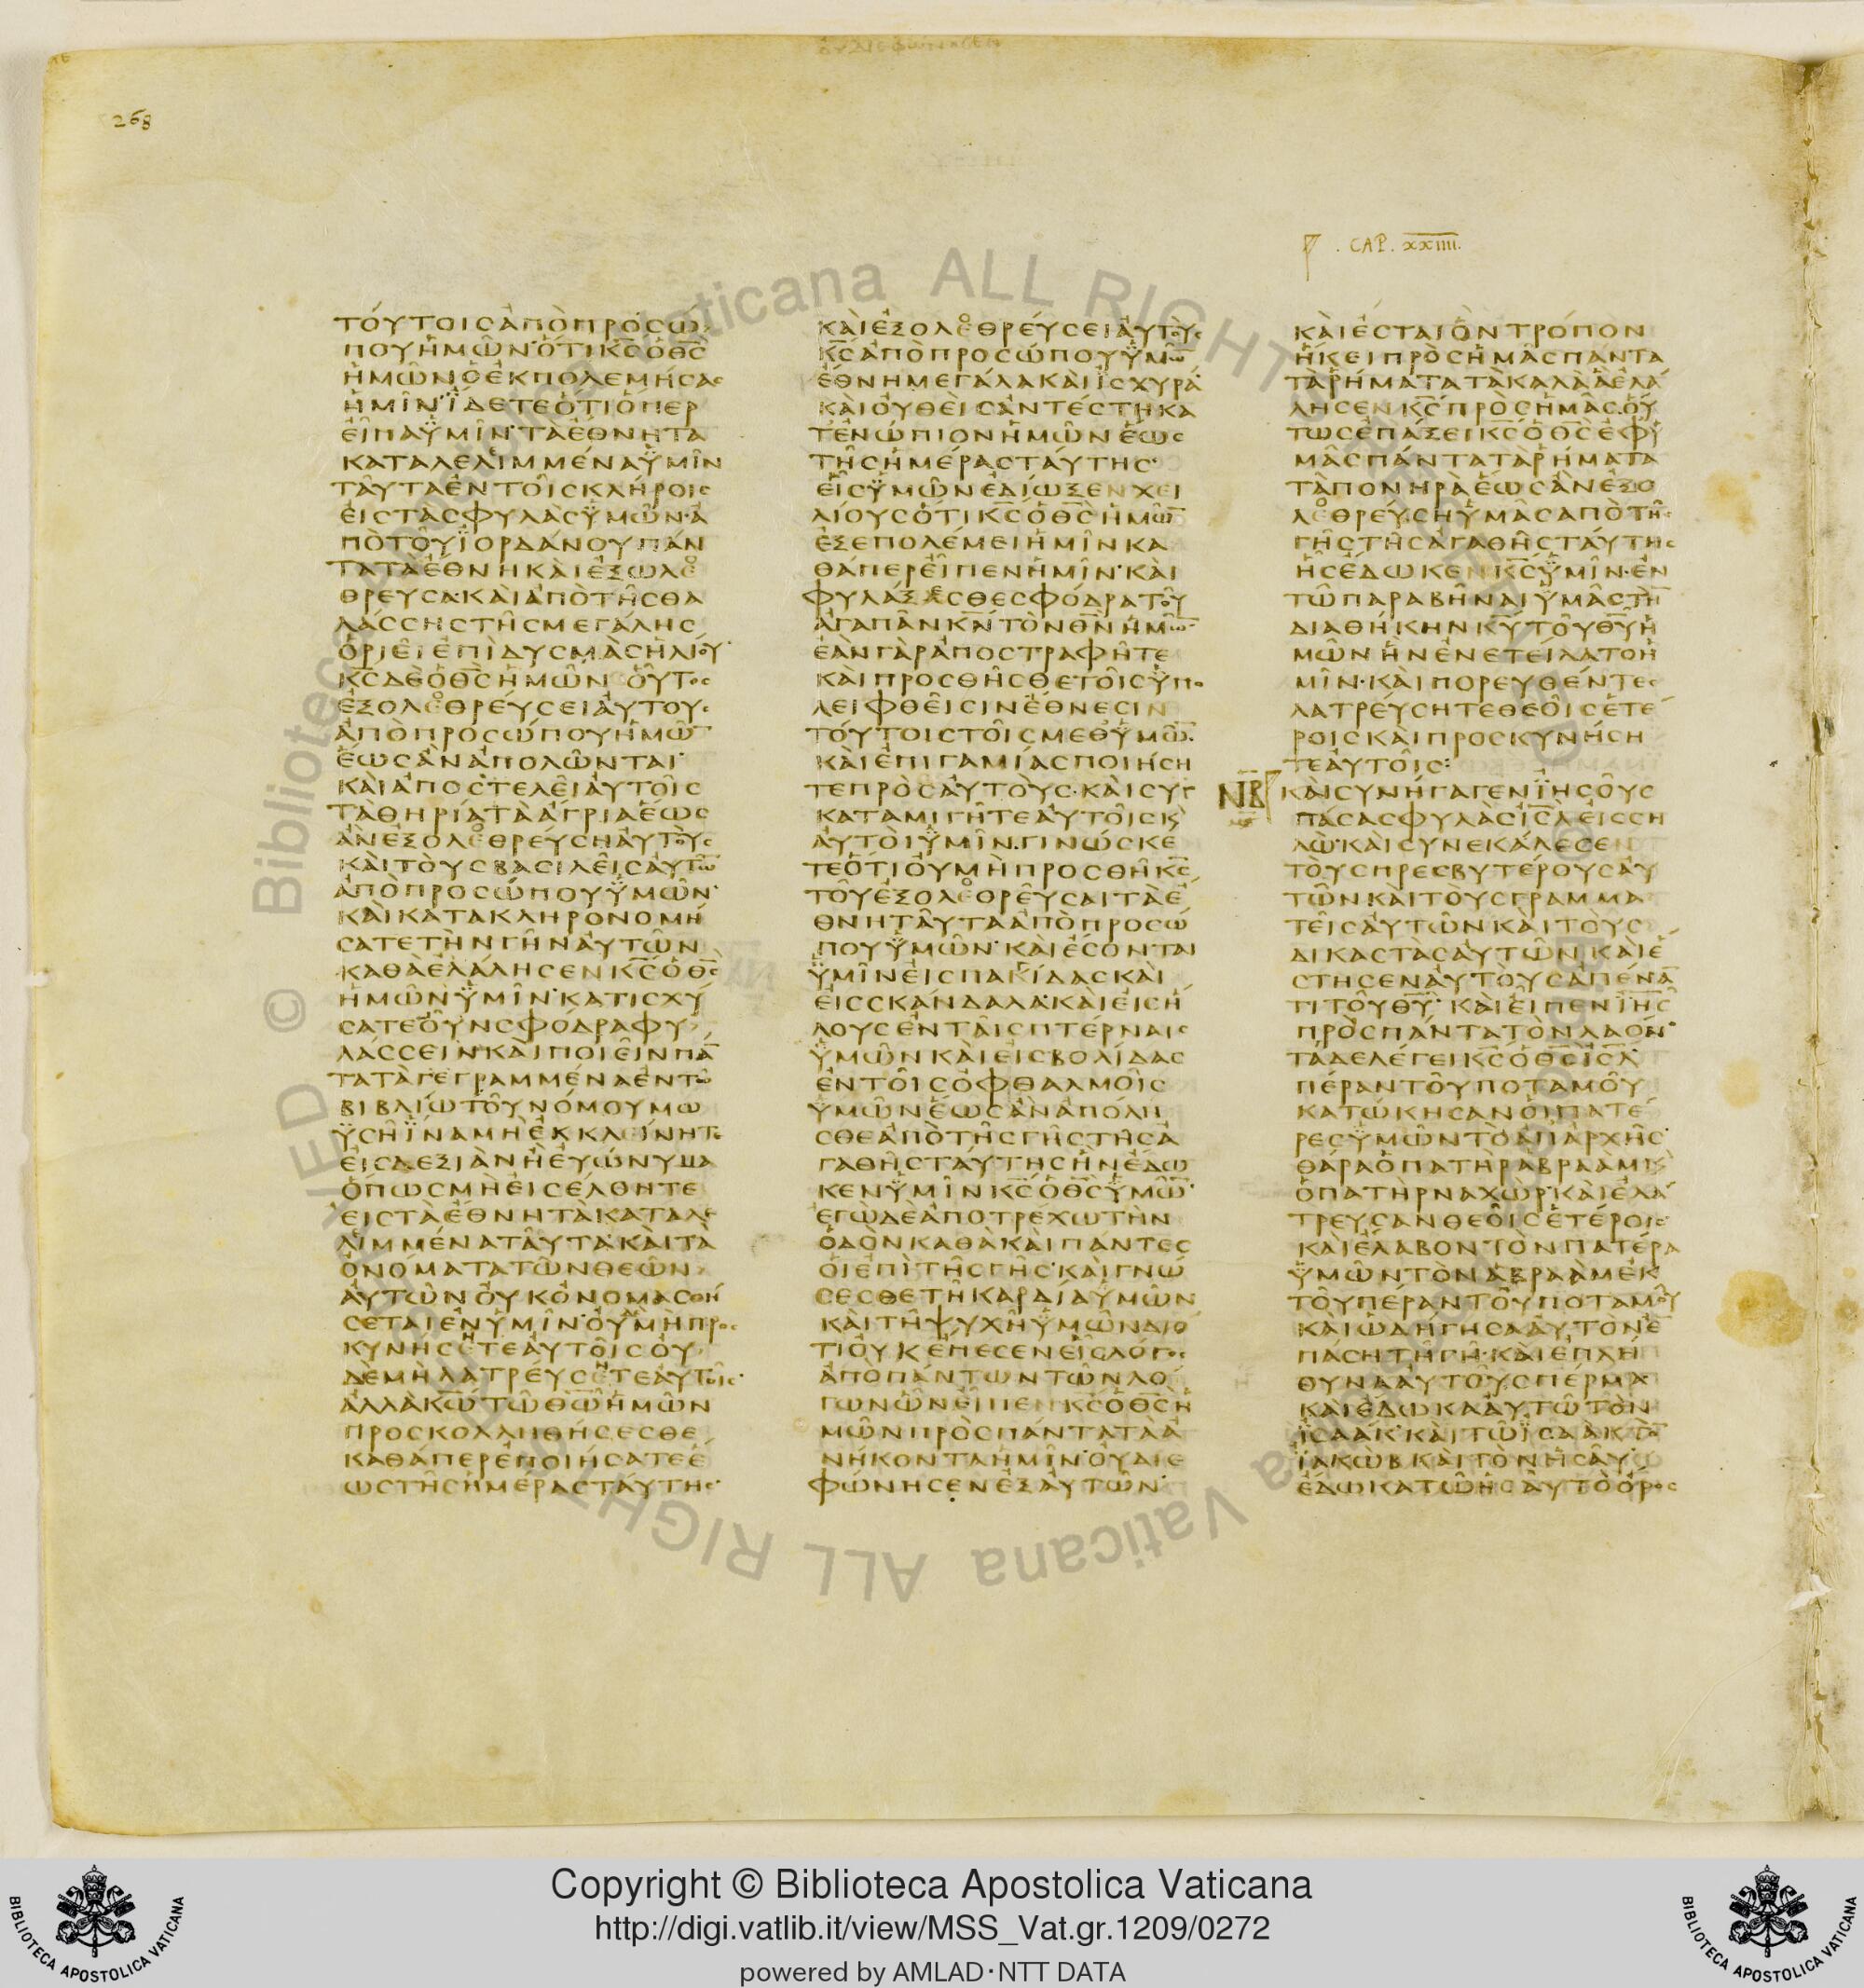 268
. CAP. XXIIII.
ΤΟΥΤΟΙCΑΠΟΠΡΟCΩ
ΠΟΥΗΜΩΝΟΤΙΚ̅C̅ΟΘ̅C̅
ΗΜΩΝΟΕΚΠΟΛΕΜΗCΑC
ΗΜΙΝ·ΪΔΕΤΕΟΤΙΟΠΕΡ
ΕΙΠΑΫΜΙΝ·ΤΑΕΘΝΗΤΑ
ΚΑΤΑΛΕΛΙΜΜΕΝΑΫΜΙΝ
ΤΑΥΤΑΕΝΤΟΙCΚΛΗΡΟΙC
ΕΙCΤΑCΦΥΛΑCΫΜΩΝ·Α
ΠΟΤΟΥΪΟΡΔΑΝΟΥΠΑΝ
ΤΑΤΑΕΘΝΗΚΑΙΕΞΩΛΕ
ΘΡΕΥCΑ·ΚΑΙΑΠΟΤΗCΘΑ
ΛΑCCΗCΤΗCΜΕΓΑΛΗC
ΟΡΙΕΙΕΠΙΔΥCΜΑCΗΛΙΟΥ·
Κ̅C̅ΔΕΟΘ̅C̅ΗΜΩΝ ΟΥΤΟC
ΕΞΟΛΕΘΡΕΥCΕΙΑΥΤΟΥC
ΑΠΟΠΡΟCΩΠΟΥΗΜΩ̅
ΕΩCΑΝΑΠΟΛΩΝΤΑΙ·
ΚΑΙΑΠΟCΤΕΛΕΙΑΥΤΟΙC
ΤΑΘΗΡΙΑΤΑΑΓΡΙΑΕΩC
ΑΝΕΞΟΛΕΘΡΕΥCΗΑΥΤΟΥC
ΚΑΙΤΟΥCΒΑCΙΛΕΙCΑΥΤΩ̅
ΑΠΟΠΡΟCΩΠΟΥΫΜΩΝ·
ΚΑΙΚΑΤΑΚΛΗΡΟΝΟΜΗ
CΑΤΕΤΗΝΓΗΝΑΥΤΩΝ
ΚΑΘΑΕΛΑΛΗCΕΝΚ̅C̅ΟΘ̅C̅
ΗΜΩΝΫΜΙΝ·ΚΑΤΙCΧΥ
CΑΤΕΟΥΝCΦΟΔΡΑΦΥ
ΛΑCCΕΙΝΚΑΙΠΟΙΕΙΝΠΑ̅
ΤΑΤΑΓΕΓΡΑΜΜΕΝΑΕΝΤΩ
ΒΙΒΛΙΩΤΟΥΝΟΜΟΥΜΩ
ΫCΗΪΝΑΜΗΕΚΚΛΕΙΝΗΤΕ
ΕΙCΔΕΞΙΑΝΗΕΥΩΝΥΜΑ
ΟΠΩCΜΗΕΙCΕΛΘΗΤΕ
ΕΙCΤΑΕΘΝΗΤΑΚΑΤΑΛΕ
ΛΙΜΜΕΝΑΤΑΥΤΑ·ΚΑΙΤΑ
ΟΝΟΜΑΤΑΤΩΝΘΕΩΝ
ΑΥΤΩΝΟΥΚΟΝΟΜΑCΘΗ
CΕΤΑΙΕΝΫΜΙΝ·ΟΥΔΕΜΗΠΡΟC
ΚΥΝΗCΗΤΕΑΥΤΟΙCΟΥ
ΔΕΜΗΛΑΤΡΕΥCΗΤΕΑΥΤΟΙC·
ΑΛΛΑΚ̅Ω̅ΤΩΘ̅Ω̅ΗΜΩΝ
ΠΡΟCΚΟΛΛΗΘΗCΕCΘΕ
ΚΑΘΑΠΕΡΕΠΟΙΗCΑΤΕΕ
ΩCΤΗCΗΜΕΡΑCΤΑΥΤΗC·
ΚΑΙΕΞΟΛΕΘΡΕΥCΕΙΑΥΤΟΥC
Κ̅C̅ΑΠΟΠΡΟCΩΠΟΥΫΜΩ̅
ΕΘΝΗΜΕΓΑΛΑΚΑΙΪCΧΥΡΑ
ΚΑΙΟΥΘΕΙCΑΝΤΕCΤΗΚΑ
ΤΕΝΩΠΙΟΝΗΜΩΝΕΩC
ΤΗCΗΜΕΡΑCΤΑΥΤΗC·
ΕΙCΫΜΩΝΕΔΙΩΞΕΝΧΕΙ
ΛΙΟΥCΟΤΙΚ̅C̅ΟΘ̅C̅ΗΜΩ̅
ΕΞΕΠΟΛΕΜΕΙΗΜΙΝΚΑ
ΘΑΠΕΡΕΙΠΕΝΗΜΙΝ·ΚΑΙ
ΦΥΛΑΞΕCΘΕCΦΟΔΡΑΤΟΥ
ΑΓΑΠΑΝΚ̅Ν̅ΤΟΝΘ̅Ν̅ΗΜΩ̅·
ΕΑΝΓΑΡΑΠΟCΤΡΑΦΗΤΕ
ΚΑΙΠΡΟCΘΗCΘΕΤΟΙCΫΠΟ
ΛΕΙΦΘΕΙCΙΝΕΘΝΕCΙΝ
ΤΟΥΤΟΙCΤΟΙCΜΕΘΫΜΩ̅·
ΚΑΙΕΠΙΓΑΜΙΑCΠΟΙΗCΗ
ΤΕΠΡΟCΑΥΤΟΥC·ΚΑΙCΥΓ
ΚΑΤΑΜΙΓΗΤΕΑΥΤΟΙCΚ
ΑΥΤΟΙΫΜΙΝ·ΓΙΝΩCΚΕ
ΤΕΟΤΙΟΥΜΗΠΡΟCΘΗΚ̅C̅
ΤΟΥΕΞΟΛΕΘΡΕΥCΑΙΤΑΕ
ΘΝΗΤΑΥΤΑΑΠΟΠΡΟCΩ
ΠΟΥΫΜΩΝ·ΚΑΙΕCΟΝΤΑΙ
ΫΜΙΝΕΙCΠΑΓΙΔΑCΚΑΙ
ΕΙCCΚΑΝΔΑΛΑ·ΚΑΙΕΙCΗ
ΛΟΥCΕΝΤΑΙCΠΤΕΡΝΑΙC
ΫΜΩΝΚΑΙΕΙCΒΟΛΙΔΑC
ΕΝΤΟΙCΟΦΘΑΛΜΟΙC
ΫΜΩΝΕΩCΑΝΑΠΟΛΗ
CΘΕΑΠΟΤΗCΓΗCΤΗCΑ
ΓΑΘΗCΤΑΥΤΗCΗΝΕΔΩ
ΚΕΝΫΜΙΝΚ̅C̅ΟΘ̅C̅ΫΜΩ̅·
ΕΓΩΔΕΑΠΟΤΡΕΧΩΤΗΝ
ΟΔΟΝΚΑΘΑΚΑΙΠΑΝΤΕC
ΟΙΕΠΙΤΗCΓΗC·ΚΑΙΓΝΩ
CΕCΘΕΤΗΚΑΡΔΙΑΫΜΩΝ
ΚΑΙΤΗΨΥΧΗΫΜΩΝΔΙΟ
ΤΙΟΥΚΕΠΕCΕΝΕΙCΛΟΓΟC
ΑΠΟΠΑΝΤΩΝΤΩΝΛΟ
ΓΩΝΩΝΕΙΠΕΝΚ̅C̅ΟΘ̅C̅Η
ΜΩΝΠΡΟCΠΑΝΤΑΤΑΑ
ΝΗΚΟΝΤΑΗΜΙΝ·ΟΥΔΙΕ
ΦΩΝΗCΕΝΕΞΑΥΤΩΝ·
ΚΑΙΕCΤΑΙΟΝΤΡΟΠΟΝ
ΗΚΕΙΠΡΟCΗΜΑCΠΑΝΤΑ
ΤΑΡΗΜΑΤΑΤΑΚΑΛΑΑΕΛΑ
ΛΗCΕΝΚ̅C̅ΠΡΟCΗΜΑC·ΟΥ
ΤΩCΕΠΑΞΕΙΚ̅C̅ΟΘ̅C̅ΕΦΫ
ΜΑCΠΑΝΤΑΤΑΡΗΜΑΤΑ
ΤΑΠΟΝΗΡΑΕΩCΑΝΕΞΟ
ΛΕΘΡΕΥCΗΫΜΑCΑΠΟΤΗC
ΓΗCΤΗCΑΓΑΘΗCΤΑΥΤΗC
ΗCΕΔΩΚΕΝΚ̅C̅ΫΜΙΝ·ΕΝ
ΤΩΠΑΡΑΒΗΝΑΙΫΜΑCΤΗ̅
ΔΙΑΘΗΚΗΝΚ̅Υ̅ΤΟΥΘ̅Υ̅Η
ΜΩΝΗΝΕΝΕΤΕΙΛΑΤΟΗ
ΜΙΝ·ΚΑΙΠΟΡΕΥΘΕΝΤΕC
ΛΑΤΡΕΥCΗΤΕΘΕΟΙCΕΤΕ
ΡΟΙCΚΑΙΠΡΟCΚΥΝΗCΗ
ΤΕΑΥΤΟΙC:
ΝΒ
ΚΑΙCΥΝΗΓΑΓΕΝΪΗCΟΥC
ΠΑCΑCΦΥΛΑCΙ̅C̅Λ̅ΕΙCCΗ
ΛΩ·ΚΑΙCΥΝΕΚΑΛΕCΕ
ΤΟΥCΠΡΕCΒΥΤΕΡΟΥCΑΥ
ΤΩΝ·ΚΑΙΤΟΥCΓΡΑΜΜΑ
ΤΕΙCΑΥΤΩΝΚΑΙΤΟΥC
ΔΙΚΑCΤΑCΑΥΤΩΝ·ΚΑΙΕ
CΤΗCΕΝΑΥΤΟΥCΑΠΕΝΑ̅
ΤΙΤΟΥΘ̅Υ̅·ΚΑΙΕΙΠΕΝΙ̅Η̅C̅
ΠΡΟCΠΑΝΤΑΤΟΝΛΑΟΝ·
ΤΑΔΕΛΕΓΕΙΚ̅C̅ΟΘ̅C̅Ι̅C̅Λ̅·
ΠΕΡΑΝΤΟΥΠΟΤΑΜΟΥ
ΚΑΤΩΚΗCΑΝΟΙΠΑΤΕ
ΡΕCΫΜΩΝΤΟΑΠΑΡΧΗC·
ΘΑΡΑΟΠΑΤΗΡΑΒΡΑΑΜΚ
ΟΠΑΤΗΡΝΑΧΩΡ·ΚΑΙΕΛΑ
ΤΡΕΥCΑΝΘΕΟΙCΕΤΕΡΟΙC·
ΚΑΙΕΛΑΒΟΝΤΟΝΠΑΤΕΡΑ
ΫΜΩΝΤΟΝΑΒΡΑΑΜΕΚ
ΤΟΥΠΕΡΑΝΤΟΥΠΟΤΑΜΟΥ
ΚΑΙΩΔΗΓΗCΑΑΥΤΟΝΕ̅
ΠΑCΗΤΗΓΗ·ΚΑΙΕΠΛΗ
ΘΥΝΑΑΥΤΟΥCΠΕΡΜΑ
ΚΑΙΕΔΩΚΑΑΥΤΩΤΟΝ
ΪCΑΑΚ·ΚΑΙΤΩΪCΑΑΚΤΟ̅
ΪΑΚΩΒΚΑΙΤΟΝΗCΑΥ·
ΕΔΩΚΑΤΩΗCΑΥΤΟΟΡΟC
Copyright © Biblioteca Apostolica Vaticana
http://digi.vatlib.it/view/MSS_Vat.gr.1209/0272
powered by AMLAD·NTT DATA
BIBLIOTECA APOSTOLICA VATICANA
BIBLIOTECA APOSTOLICA VATICANA